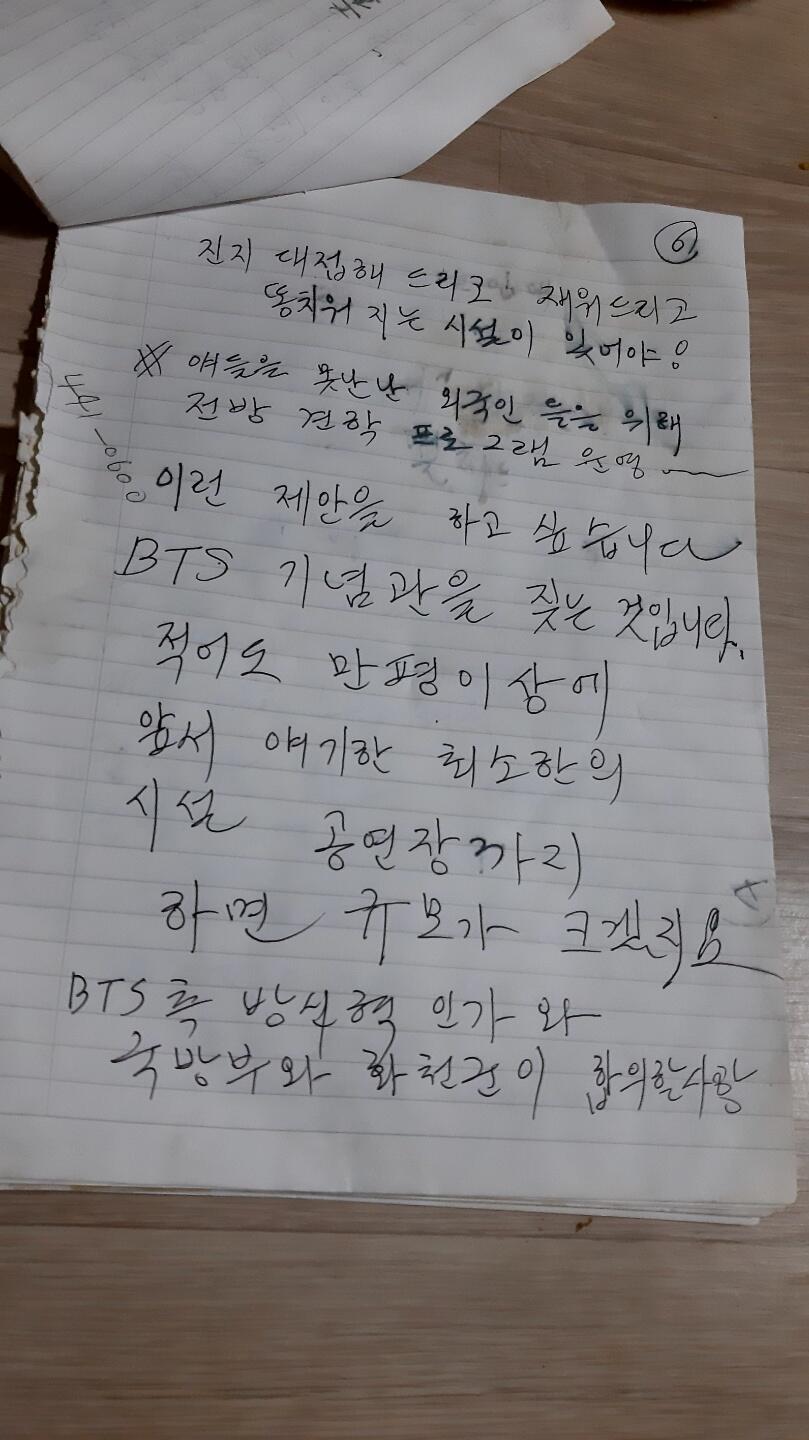 6
진지 대접해 드리고 재워드리고
똥치워 지는 시설이 있어야 ?
※ 얘들을 못난난 외국인 들을 위해
전방 견학 프로그램 운영
이런 제안을 하고 싶습니다
BTS 기념관을 짖는 것입니다.
적어도 만평이상에
앞서 얘기한 최소한의
시설 공연장까지
하면 규모가 크겠지요
BTS 측 방식혁 인가 와
국방부와 화천군이 합의할사항